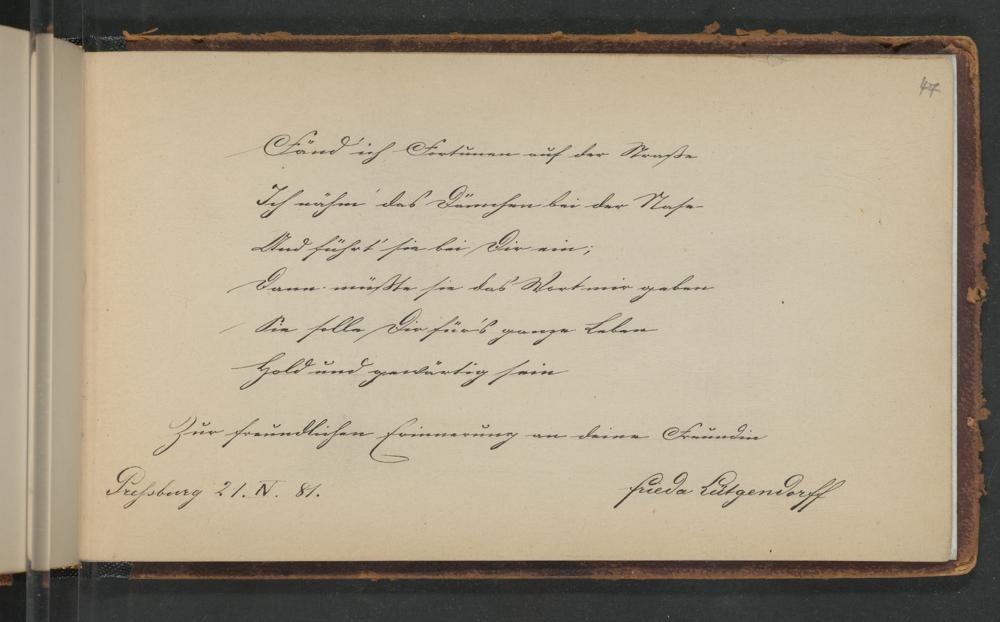 47
Fänd' ich Fortunen auf der Straße
Ich nähm' das Dämchen bei der Nase
Und führt' sie bei Dir ein;
Dann müßte sie das Wort mir geben
Sie solle Dir für's ganze Leben
Hold und gewärtig sein
Zur freundlichen Erinnerung an deine Freundin
Preßburg 21. IV. 81. Frieda Lütgendorff